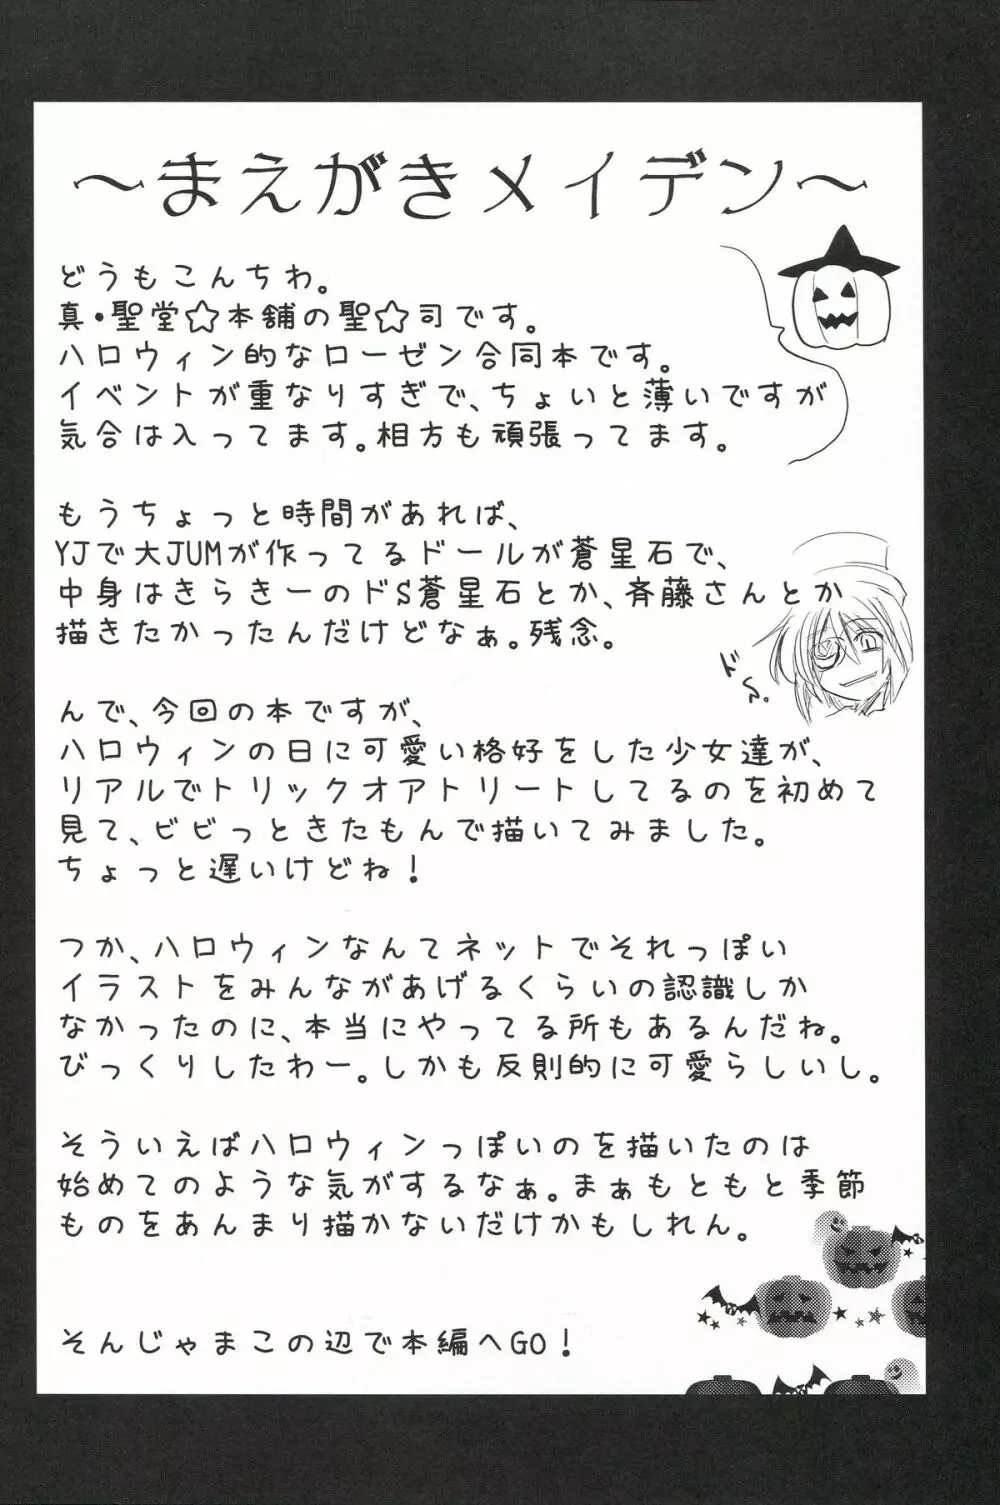 ～まえがきメイデン～
どうもこんちわ。
真・聖堂☆本舗の聖☆司です。
ハロウィン的なローゼン合同本です。
イベントが重なりすぎで、ちょいと薄いですが
気合は入ってます。相方も頑張ってます。
もうちょっと時間があれば、
YJで大JUMが作ってるドールが蒼星石で、
中身はきらきーのドS蒼星石とか、斉藤さんとか
描きたかったんだけどなぁ。残念。
んで、今回の本ですが、
ハロウィンの日に可愛い格好をした少女達が、
リアルでトリックオアトリートしてるのを初めて
見て、ビビっときたもんで描いてみました。
ちょっと遅いけどね！
つか、ハロウィンなんてネットでそれっぽい
イラストをみんながあげるくらいの認識しか
なかったのに、本当にやってる所もあるんだね。
びっくりしたわー。しかも反則的に可愛らしいし。
そういえばハロウィンっぽいのを描いたのは
始めてのような気がするなぁ。まぁもともと季節
ものをあんまり描かないだけかもしれん。
そんじゃまこの辺で本編へGO！